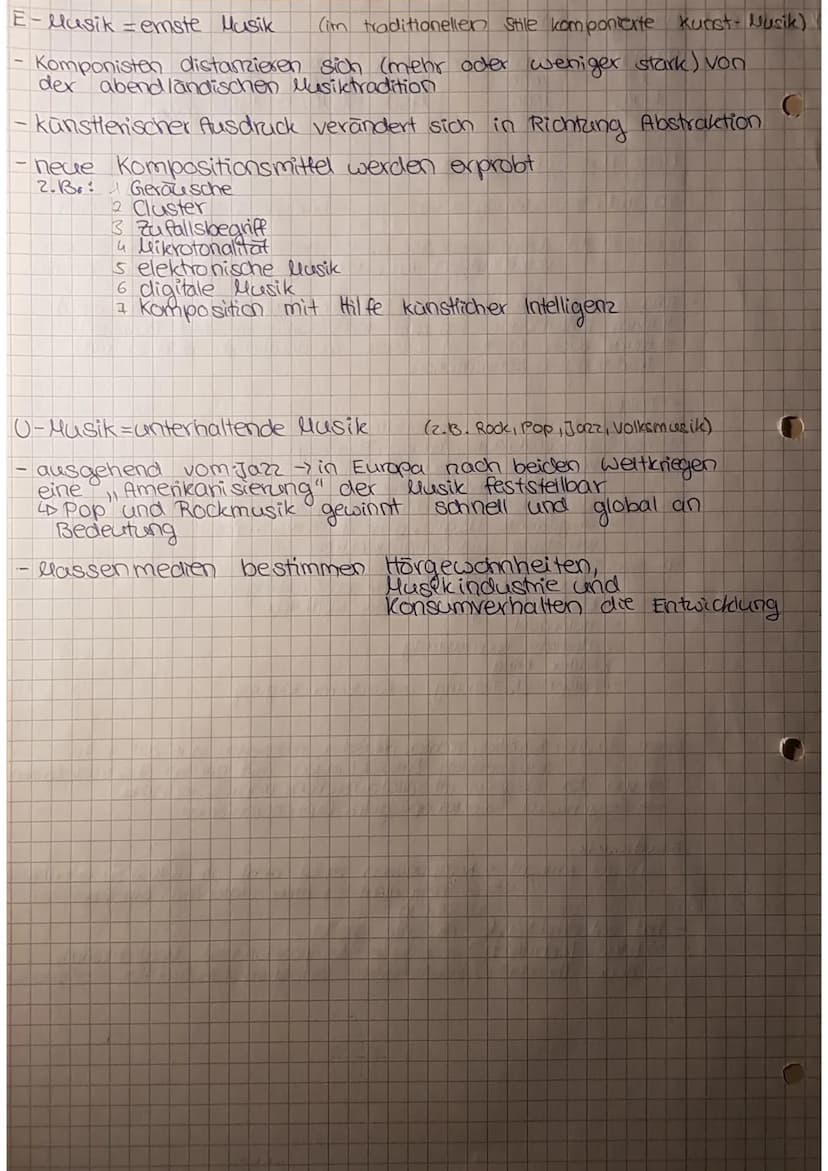 E-Musik = ernste Musik (im traditionellen Stile komponierte Kunst-Musik)
- Komponisten distanzieren sich (mehr oder weniger stark) von
der abendländischen Musiktradition
- künstlerischer Ausdruck verändert sich in Richtung Abstraktion
- neue Kompositionsmittel werden erprobt
z.B.: 1 Geräusche
2 Cluster
3 Zufallsbegriff
4 Mikrotonalität
5 elektronische Musik
6 digitale Musik
7 Komposition mit Hilfe künstlicher Intelligenz
U-Musik = unterhaltende Musik (z.B. Rock, Pop, Jazz, Volksmusik)
- ausgehend vom Jazz → in Europa nach beiden Weltkriegen
eine „Amerikanisierung" der Musik feststellbar
↳ Pop und Rockmusik gewinnt schnell und global an
Bedeutung
- Massenmedien bestimmen Hörgewohnheiten,
Musikindustrie und
Konsumverhalten die Entwicklung